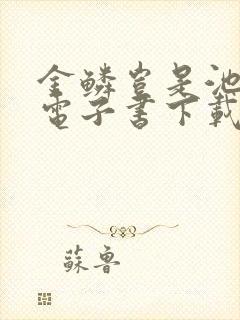 金鱗豈是池
電子書下載
蘇魯